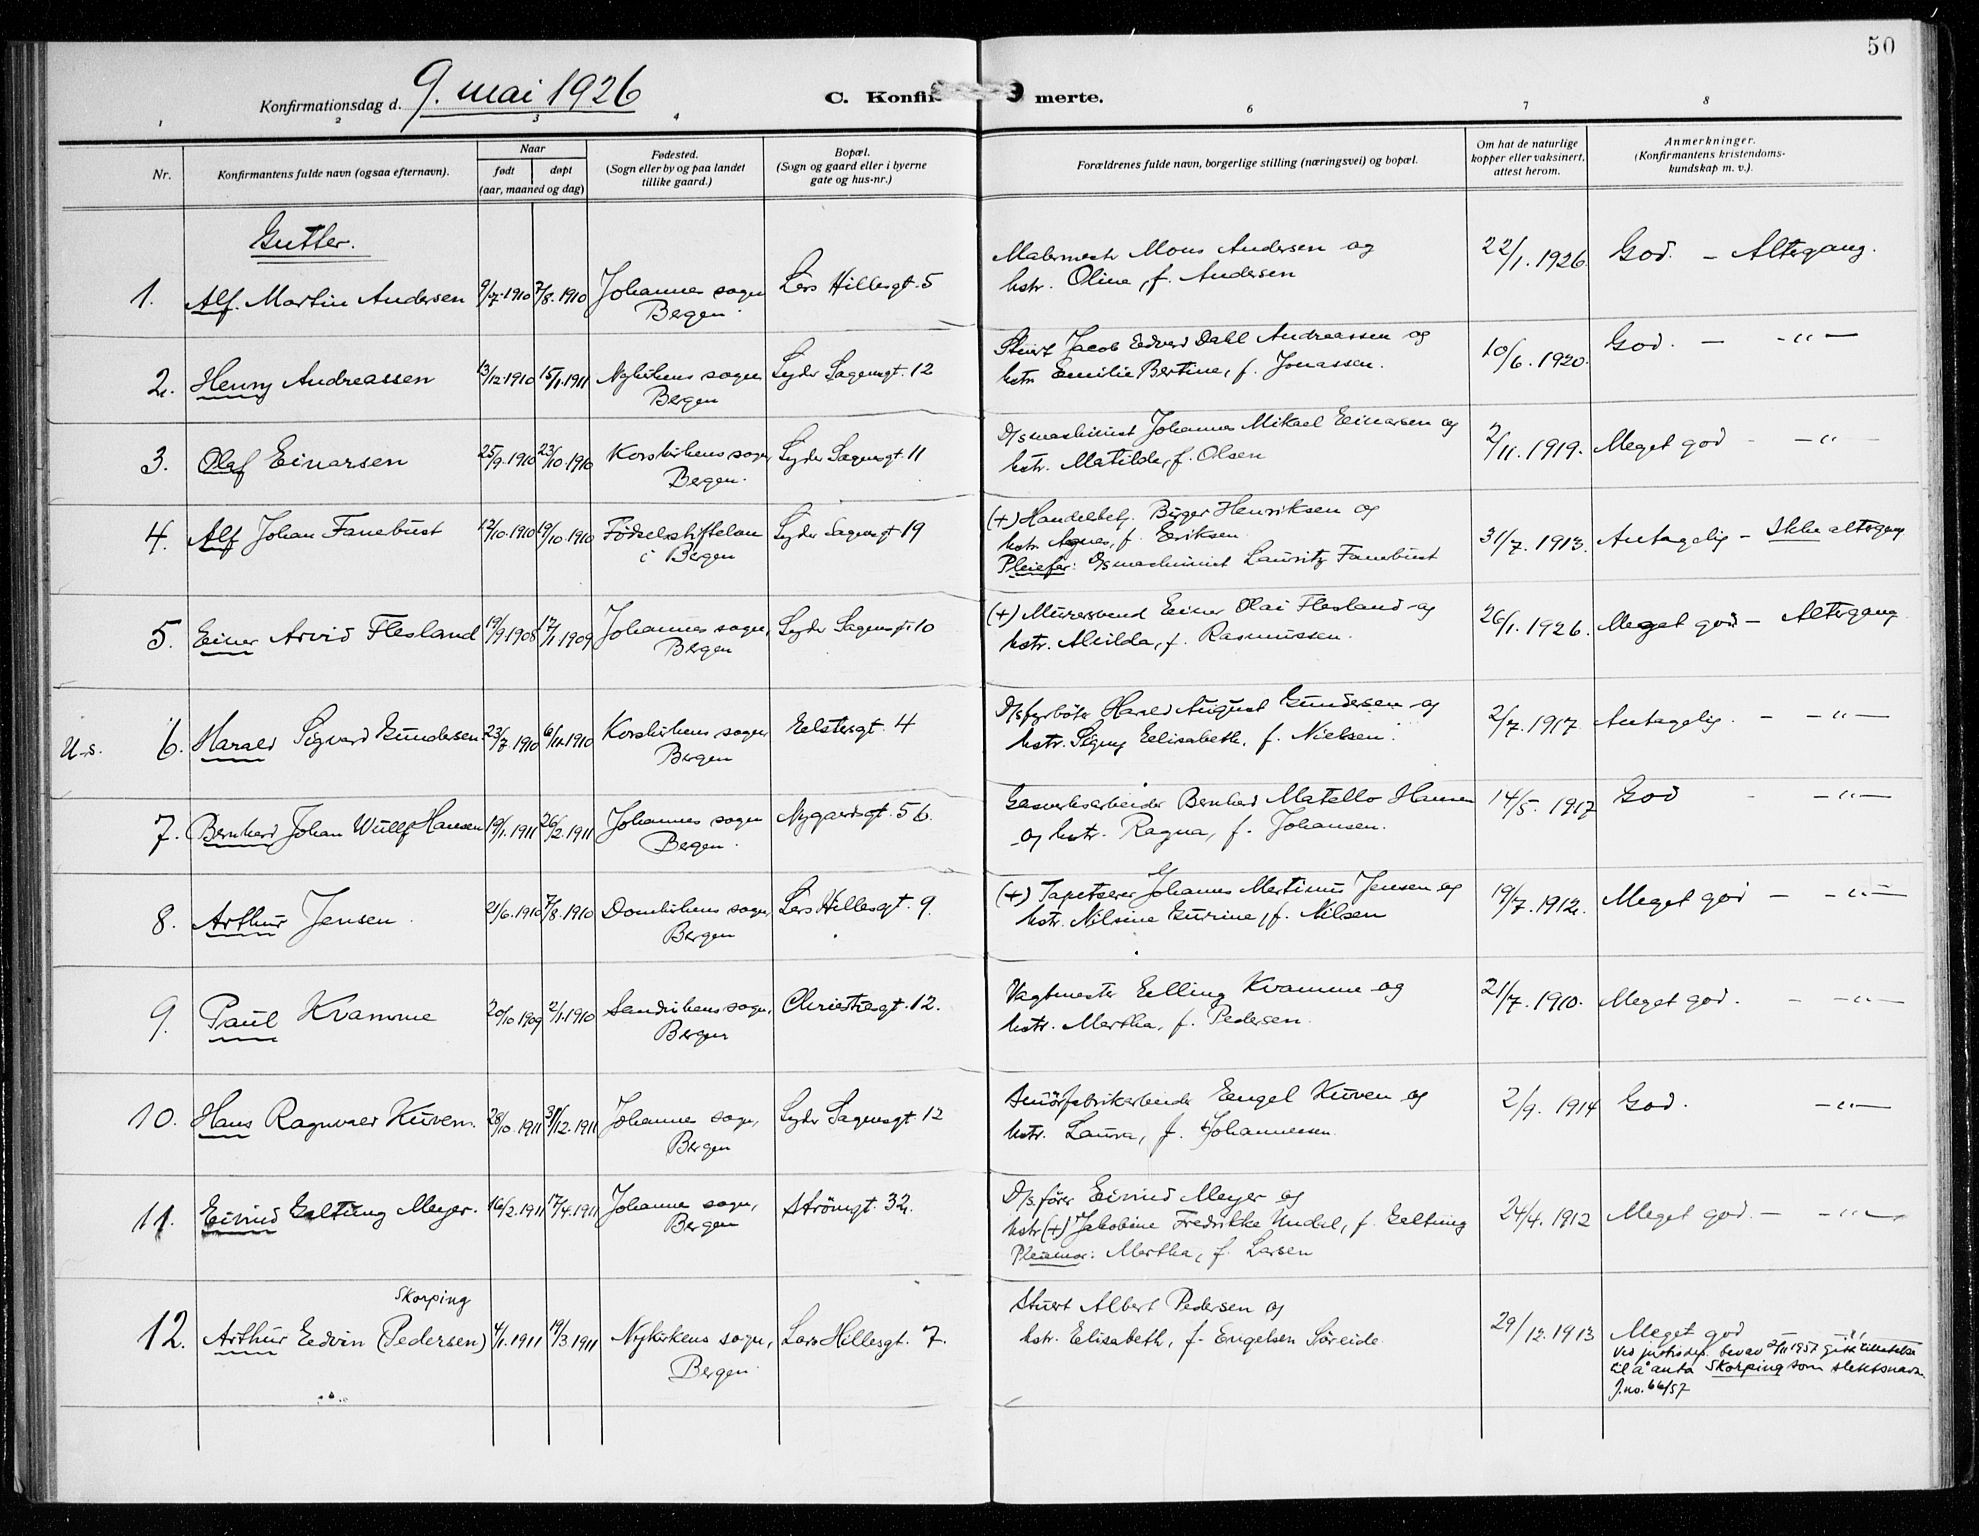 50
Konfirmationsdag d. 9. mai 1926
C. Konfir merte.
1 2 3 4 6 7 8
Nr.
Konfirmantens fulde navn (ogsaa efternavn).
Naar
født døpt
(aar, maaned og dag)
Fødested.
(Sogn eller by og paa landet
tillike gaard.)
Bopæl.
(Sogn og gaard eller i byerne
gate og hus-nr.)
Forældrenes fulde navn, borgerlige stilling (næringsvei) og bopæl.
Om hat de naturlige
kopper eller vaksinert,
attest herom.
Anmerkninger.
(Konfirmantens kristendoms-
kundskap m. v.).
Gutter.
1. Alf Martin Andersen 9/7.1910 7/8.1910 Johannes sogn Bergen. Lars Hillesgt. 5
Malermestr Mons Andersen og
hstr. Oline, f. Andersen
22/1.1926. God. – Altergang.
2. Henry Andreassen 13/12.1910 15/1.1911 Nykirkens sogn, Bergen Lyder Sagensgt. 12
Stuert Jacob Edvard Dahl Andreassen og
hstr Emilie Bertine, f. Jonassen.
10/6.1920. God. – -"-
3. Olaf Einarsen 25/9.1910 23/10.1910 Korskirkens sogn, Bergen. Lyder Sagensgt. 11
D/smaskinist Johannes Mikael Einarsen og
hstr. Matilda, f. Olsen
2/11.1919. Meget god - -"-
4. Alf Johan Fanebust 12/10.1910 19/10.1910 Fødselsstiftelsen i Bergen Lyder Sagensgt 19
(+) Handelbetj. Birger Henriksen og
hstr Agnes, f. Eriksen.
Pleiefar: D/smaskinist Lauritz Fanebust
31/7.1913. Antagelig – Ikke altergang
5. Einar Arvid Flesland 19/9.1908 17/1.1909 Johannes sogn, Bergen Lyder Sagensgt. 10
(+) Murersvend Einar Olai Flesland og
hstr. Milda, f. Rasmussen.
26/1.1926. Meget god – Altergang
U.s. 6. Harald Sigvard Gundersen 23/7.1910 6/11.1910 Korskirkens sogn, Bergen Elstersgt. 4
D/sfyrbøter Harald August Gundersen og
hstr. Signy Elisabeth, f. Nielsen.
2/7.1917. Antagelig. – -"-
7. Bernhard Johan Wulff Hansen 19/1.1911 26/2.1911 Johannes sogn Bergen. Nygaardsgt. 56.
Gasverksarbeider Bernhard Matello Hansen
og hstr. Ragna, f. Johansen.
14/5.1917 God - -"-
8. Arthur Jensen. 21/6.1910 7/8.1910 Domkirkens sogn, Bergen Lars Hillesgt. 9.
(+) Tapetserer Johannes Martinus Jensen og
hstr. Nilsine Gurine, f. Nilsen
19/7.1912. Meget god – -"-
9. Paul Kvamme 20/10.1909 2/1.1910 Sandvikens sogn, Bergen Christiesgt. 12.
Vagtmester Elling Kvamme og
hstr. Martha, f. Pedersen.
21/7.1910. Meget god. – -"-
10. Hans Ragnvald Kuven. 28/10.1911 31/12.1911 Johannes sogn, Bergen Lyder Sagensgt 12
Smørfabrikarbeider Engel Kuven og
hstr. Laura, f. Johannessen.
2/9.1914 God. -"-
11. Eivind Geltung Meyer. 16/2.1911 17/4.1911 Johannes sogn, Bergen Strømgt. 32.
D/s.fører Eivind Meyer og
hstr (+) Jakobine Fredrikke Undal, f. Geltung
Pleiemor: Martha, f. Larsen
24/4.1912 Meget god. – -"-
Skorping
12. Arthur Edvin (Pedersen) 4/1.1911 19/3.1911 Nykirkens sogn, Bergen. Lars Hillesgt. 7.
Stuert Albert Pedersen og
hstr. Elisabeth, f. Engelsen Søreide
29/12.1913 Meget god -"-
Ved justisdep. bev av 2/11 1957 gitt tillatelse
til å anta Skorping som slektsnavn
J.no. 66/57